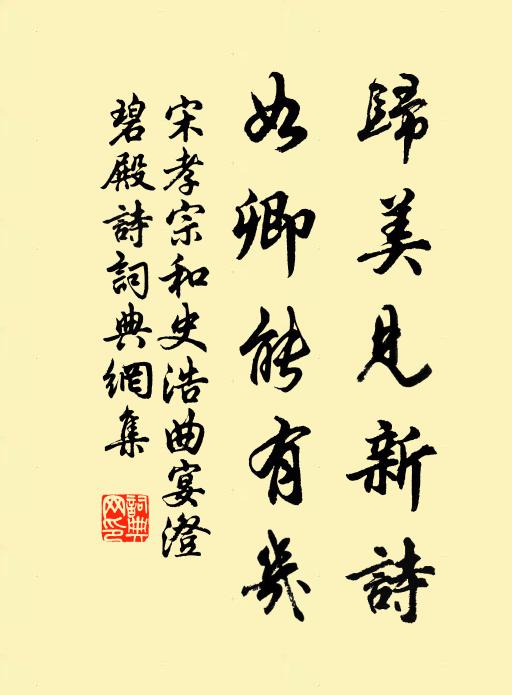 歸美見新詩
如卿能有幾
宋孝宗和史浩曲宴澄
碧殿詩詞典網集
詞典
网印